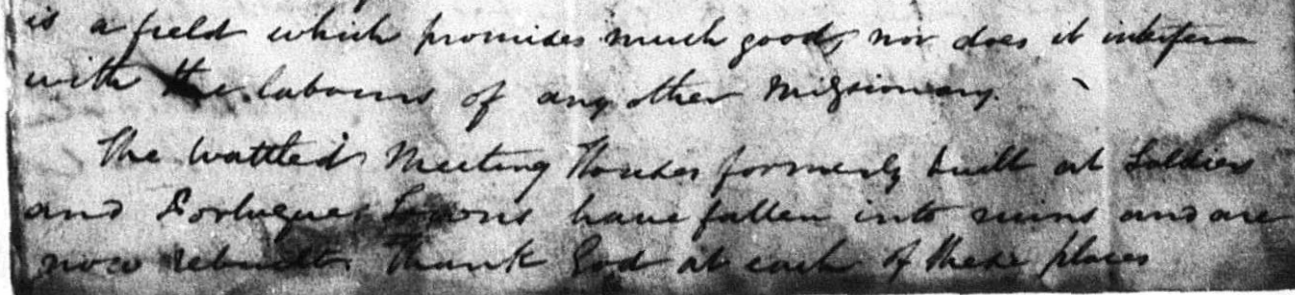 is a field which promises much good, nor does it interfere
with the labours of any other Missionary.
The wattled Meeting Houses formerly built at Soldier
and Portuguese Towns have fallen into ruins and are
now rebuilt. Thank God at each of these places